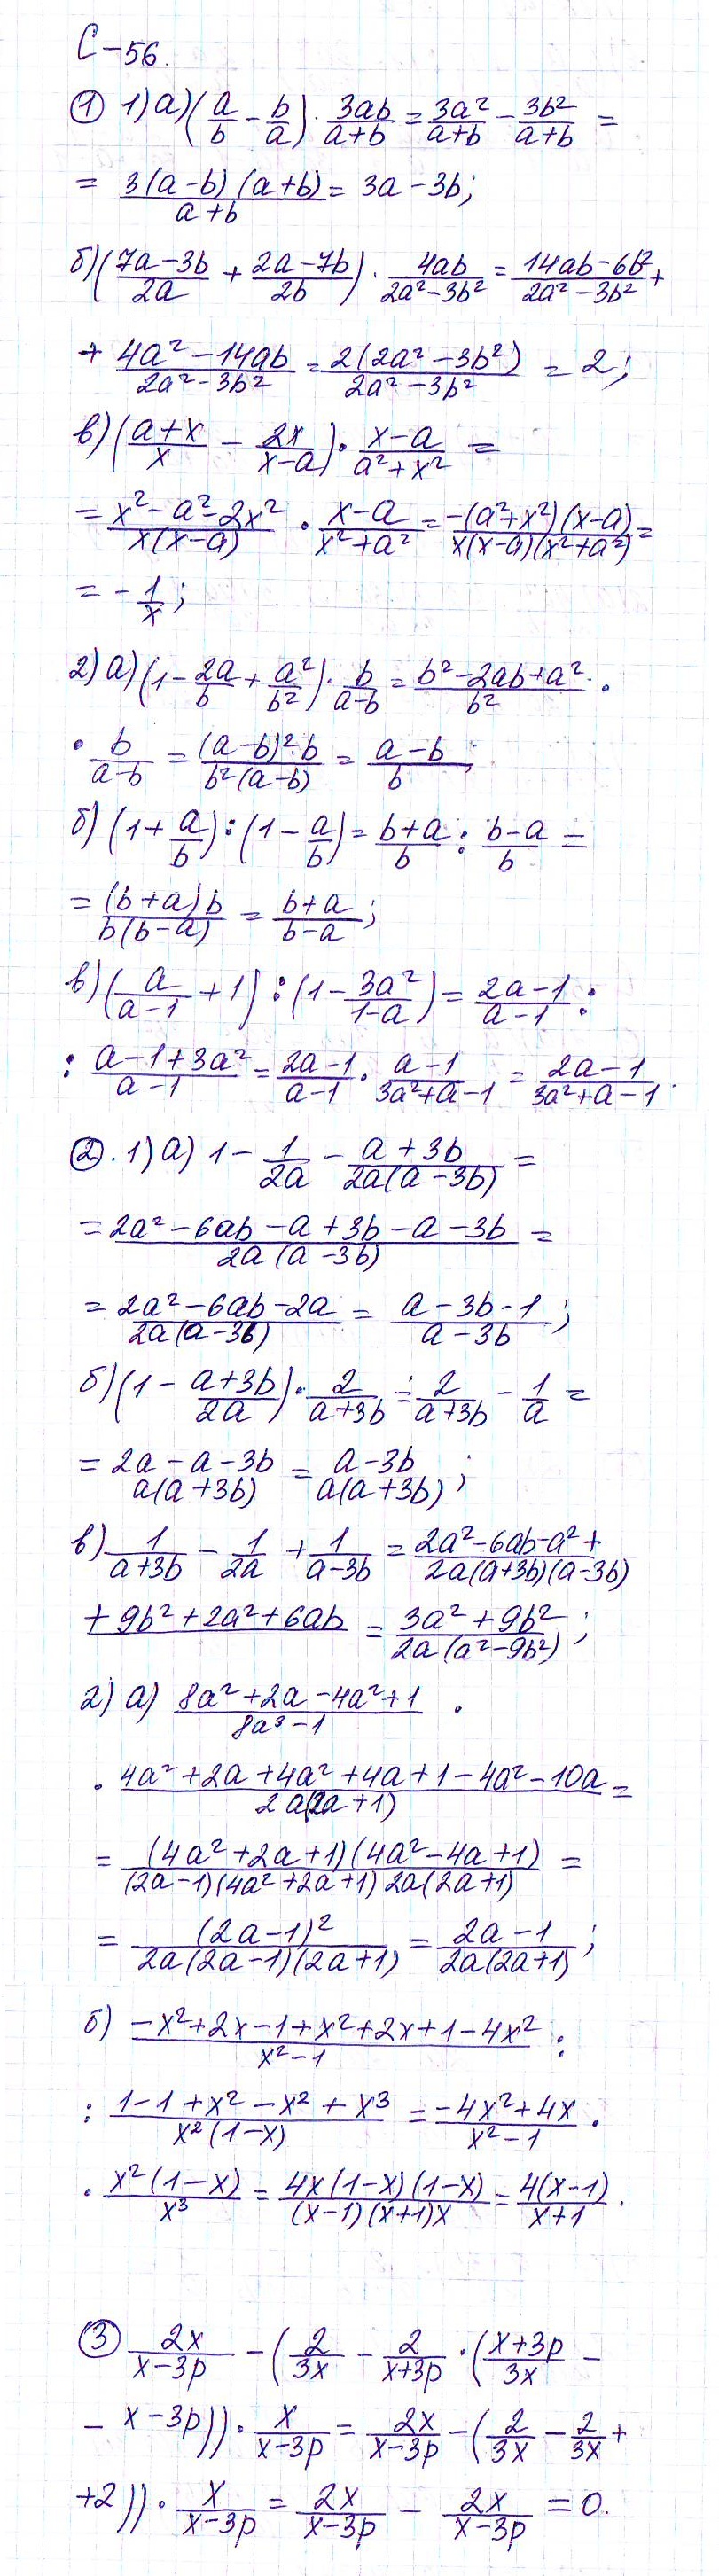 С-56.
① 1) а) (a/b - b/a) · 3ab/(a+b) = 3a²/(a+b) - 3b²/(a+b) =
= 3(a-b)(a+b)/(a+b) = 3a-3b;
б) ((7a-3b)/2a + (2a-7b)/2b) · 4ab/(2a²-3b²) = (14ab-6b²)/(2a²-3b²) +
+ (4a²-14ab)/(2a²-3b²) = 2(2a²-3b²)/(2a²-3b²) = 2;
в) ((a+x)/x - 2x/(x-a)) · (x-a)/(a²+x²) =
= (x²-a²-2x²)/(x(x-a)) · (x-a)/(x²+a²) = -(a²+x²)(x-a)/(x(x-a)(x²+a²)) =
= -1/x;
2) а) (1 - 2a/b + a²/b²) · b/(a-b) = (b²-2ab+a²)/b² ·
· b/(a-b) = (a-b)²·b/(b²(a-b)) = (a-b)/b;
б) (1 + a/b) : (1 - a/b) = (b+a)/b : (b-a)/b =
= (b+a)b/(b(b-a)) = (b+a)/(b-a);
в) (a/(a-1) + 1) : (1 - 3a²/(1-a)) = (2a-1)/(a-1) :
: (a-1+3a²)/(a-1) = (2a-1)/(a-1) · (a-1)/(3a²+a-1) = (2a-1)/(3a²+a-1).
②. 1) а) 1 - 1/2a - (a+3b)/(2a(a-3b)) =
= (2a²-6ab-a+3b-a-3b)/(2a(a-3b)) =
= (2a²-6ab-2a)/(2a(a-3b)) = (a-3b-1)/(a-3b);
б) (1 - (a+3b)/2a) · 2/(a+3b) = 2/(a+3b) - 1/a =
= (2a-a-3b)/(a(a+3b)) = (a-3b)/(a(a+3b));
в) 1/(a+3b) - 1/2a + 1/(a-3b) = (2a²-6ab-a²+)/(2a(a+3b)(a-3b))
+9b²+2a²+6ab = (3a²+9b²)/(2a(a²-9b²));
2) а) (8a²+2a-4a²+1)/(8a³-1) ·
· (4a²+2a+4a²+4a+1-4a²-10a)/(2a(2a+1)) =
= (4a²+2a+1)(4a²-4a+1)/((2a-1)(4a²+2a+1)2a(2a+1)) =
= (2a-1)²/(2a(2a-1)(2a+1)) = (2a-1)/(2a(2a+1));
б) (-x²+2x-1+x²+2x+1-4x²)/(x²-1) :
: (1-1+x²-x²+x³)/(x²(1-x)) = (-4x²+4x)/(x²-1) ·
· x²(1-x)/x³ = 4x(1-x)(1-x)/((x-1)(x+1)x) = 4(x-1)/(x+1).
③ 2x/(x-3p) - (2/3x - 2/(x+3p) · ((x+3p)/3x -
- x-3p)) · x/(x-3p) = 2x/(x-3p) - (2/3x - 2/3x +
+2)) · x/(x-3p) = 2x/(x-3p) - 2x/(x-3p) = 0.